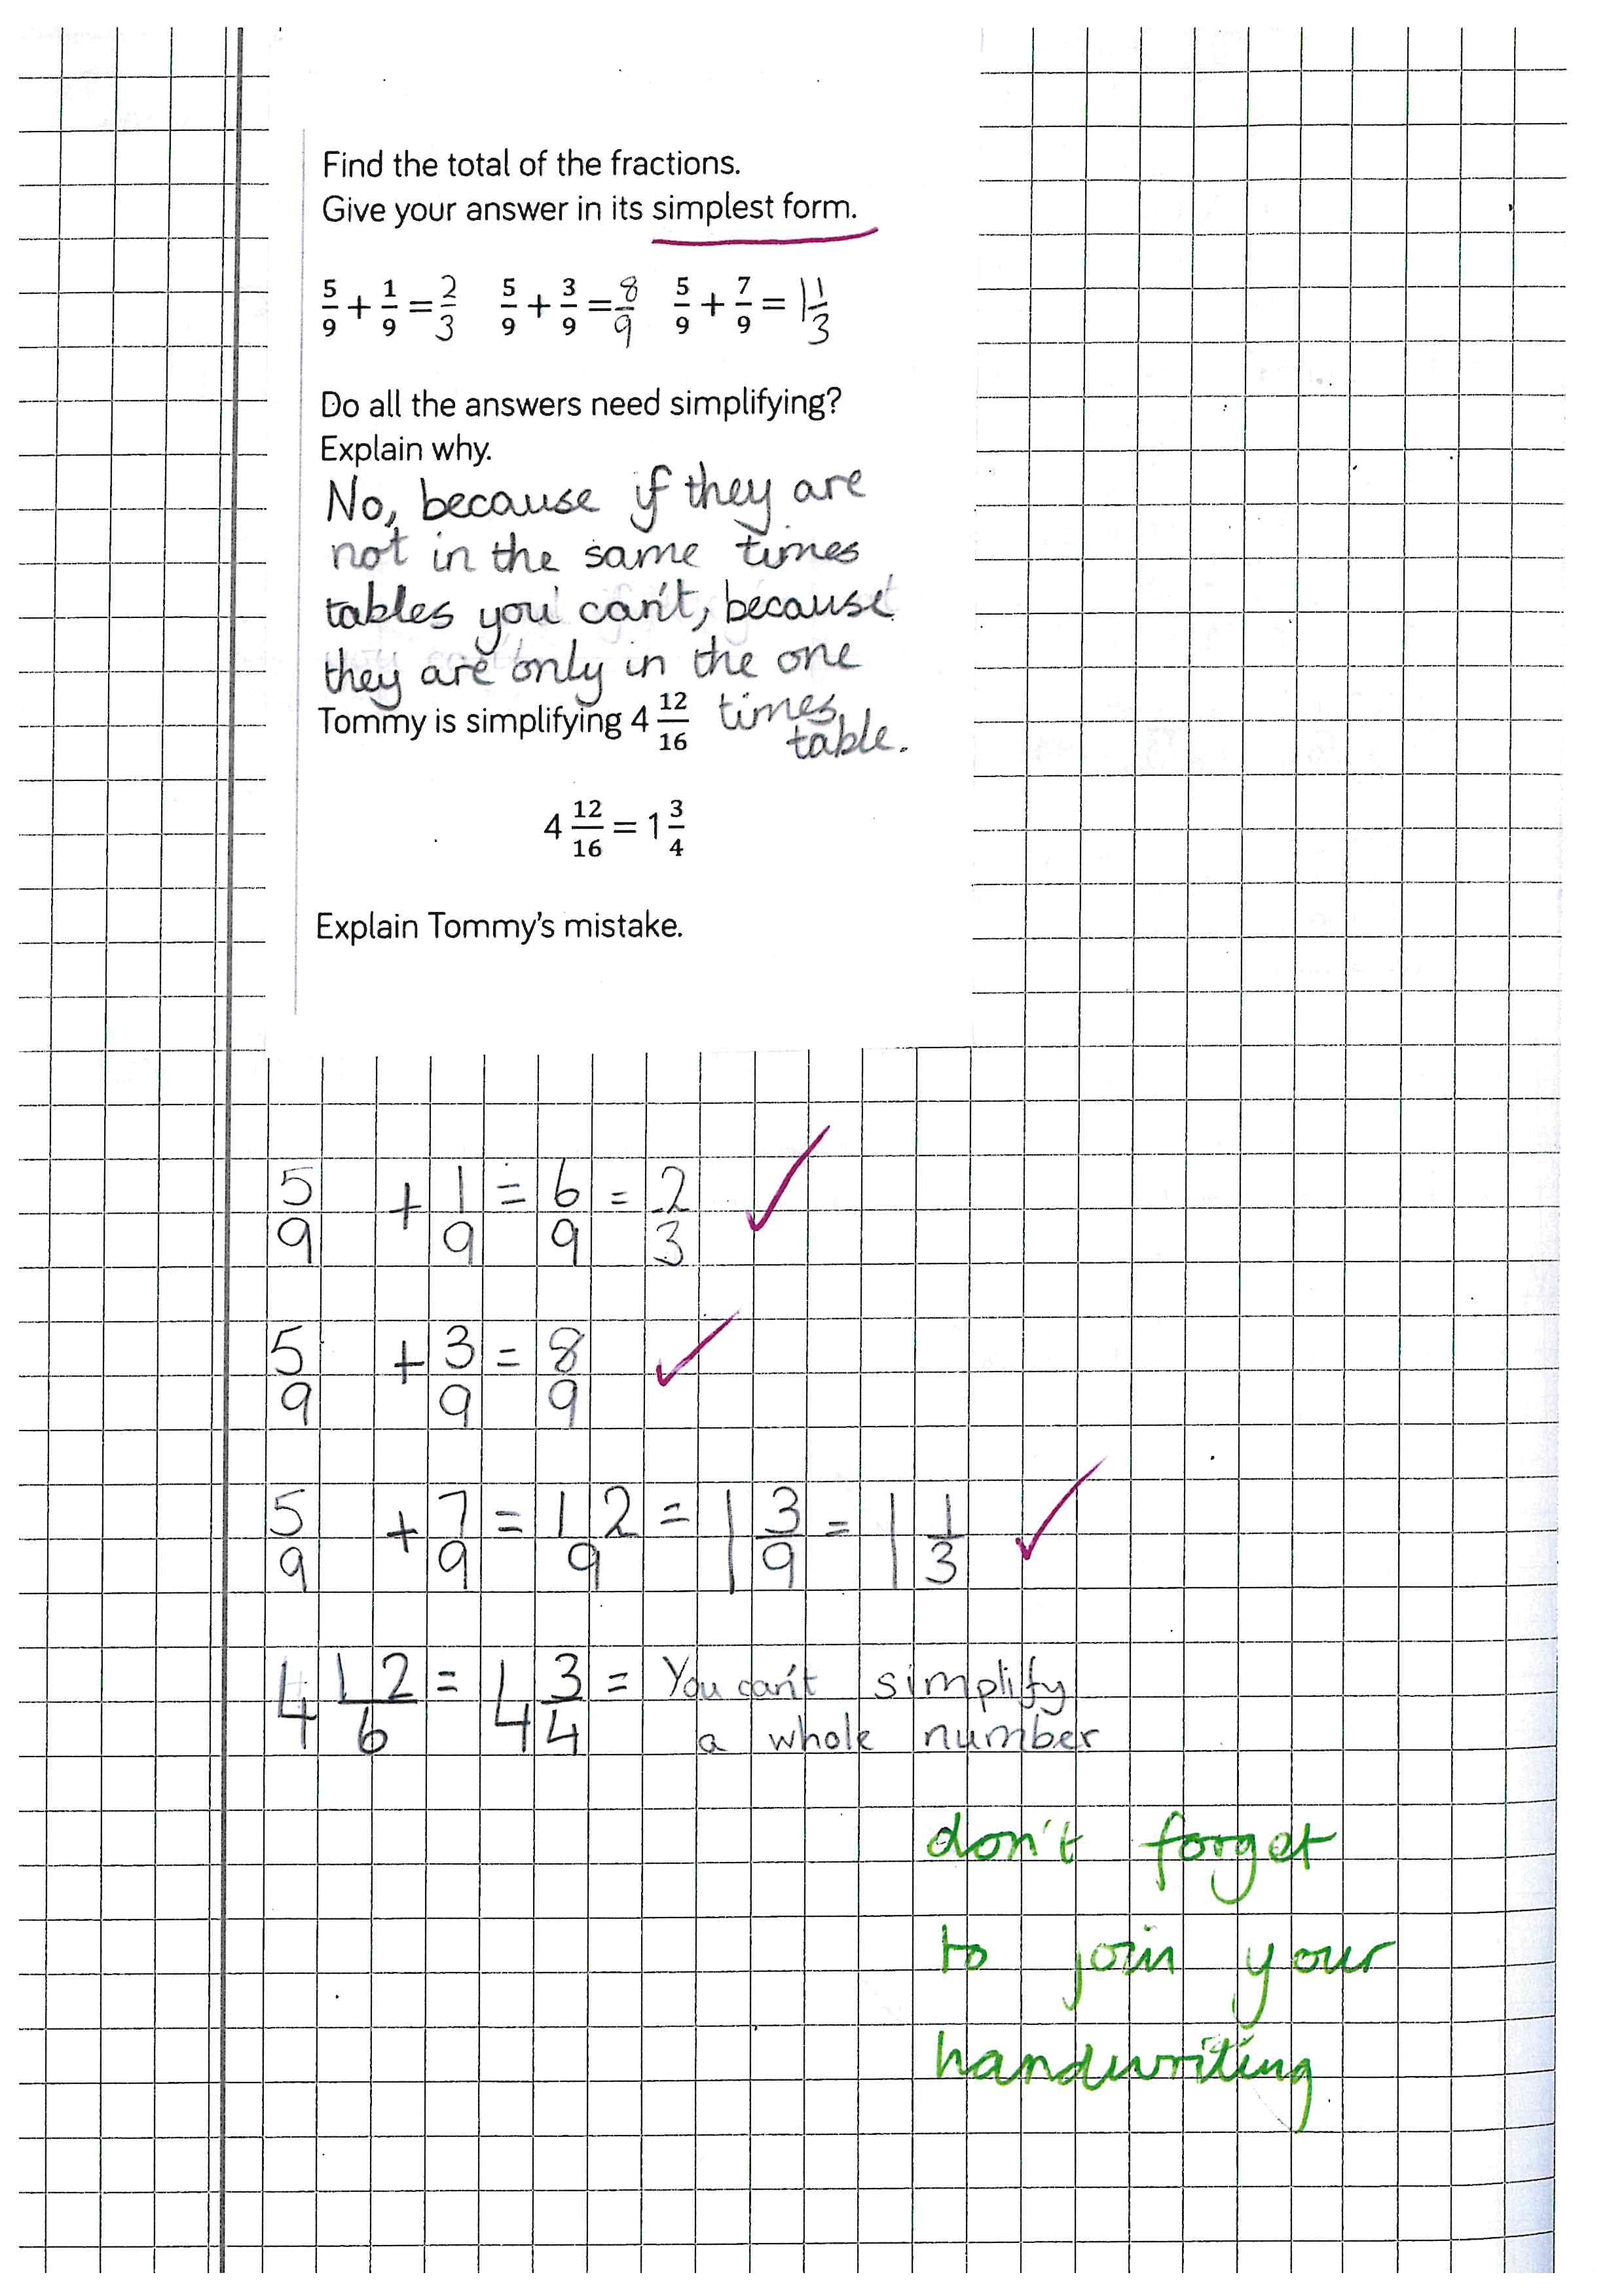 Find the total of the fractions.
Give your answer in its simplest form.
5/9 + 1/9 = 2/3 5/9 + 3/9 = 8/9 5/9 + 7/9 = 1 1/3
Do all the answers need simplifying?
Explain why.
No, because if they are
not in the same times
tables you can't, because
they are only in the one
times
table.
Tommy is simplifying 4 12/16
4 12/16 = 1 3/4
Explain Tommy's mistake.
5/9 + 1/9 = 6/9 = 2/3
5/9 + 3/9 = 8/9
5/9 + 7/9 = 12/9 = 1 3/9 = 1 1/3
4 12/6 = 4 3/4 = You can't simplify
a whole number
don't forget
to join your
handwriting